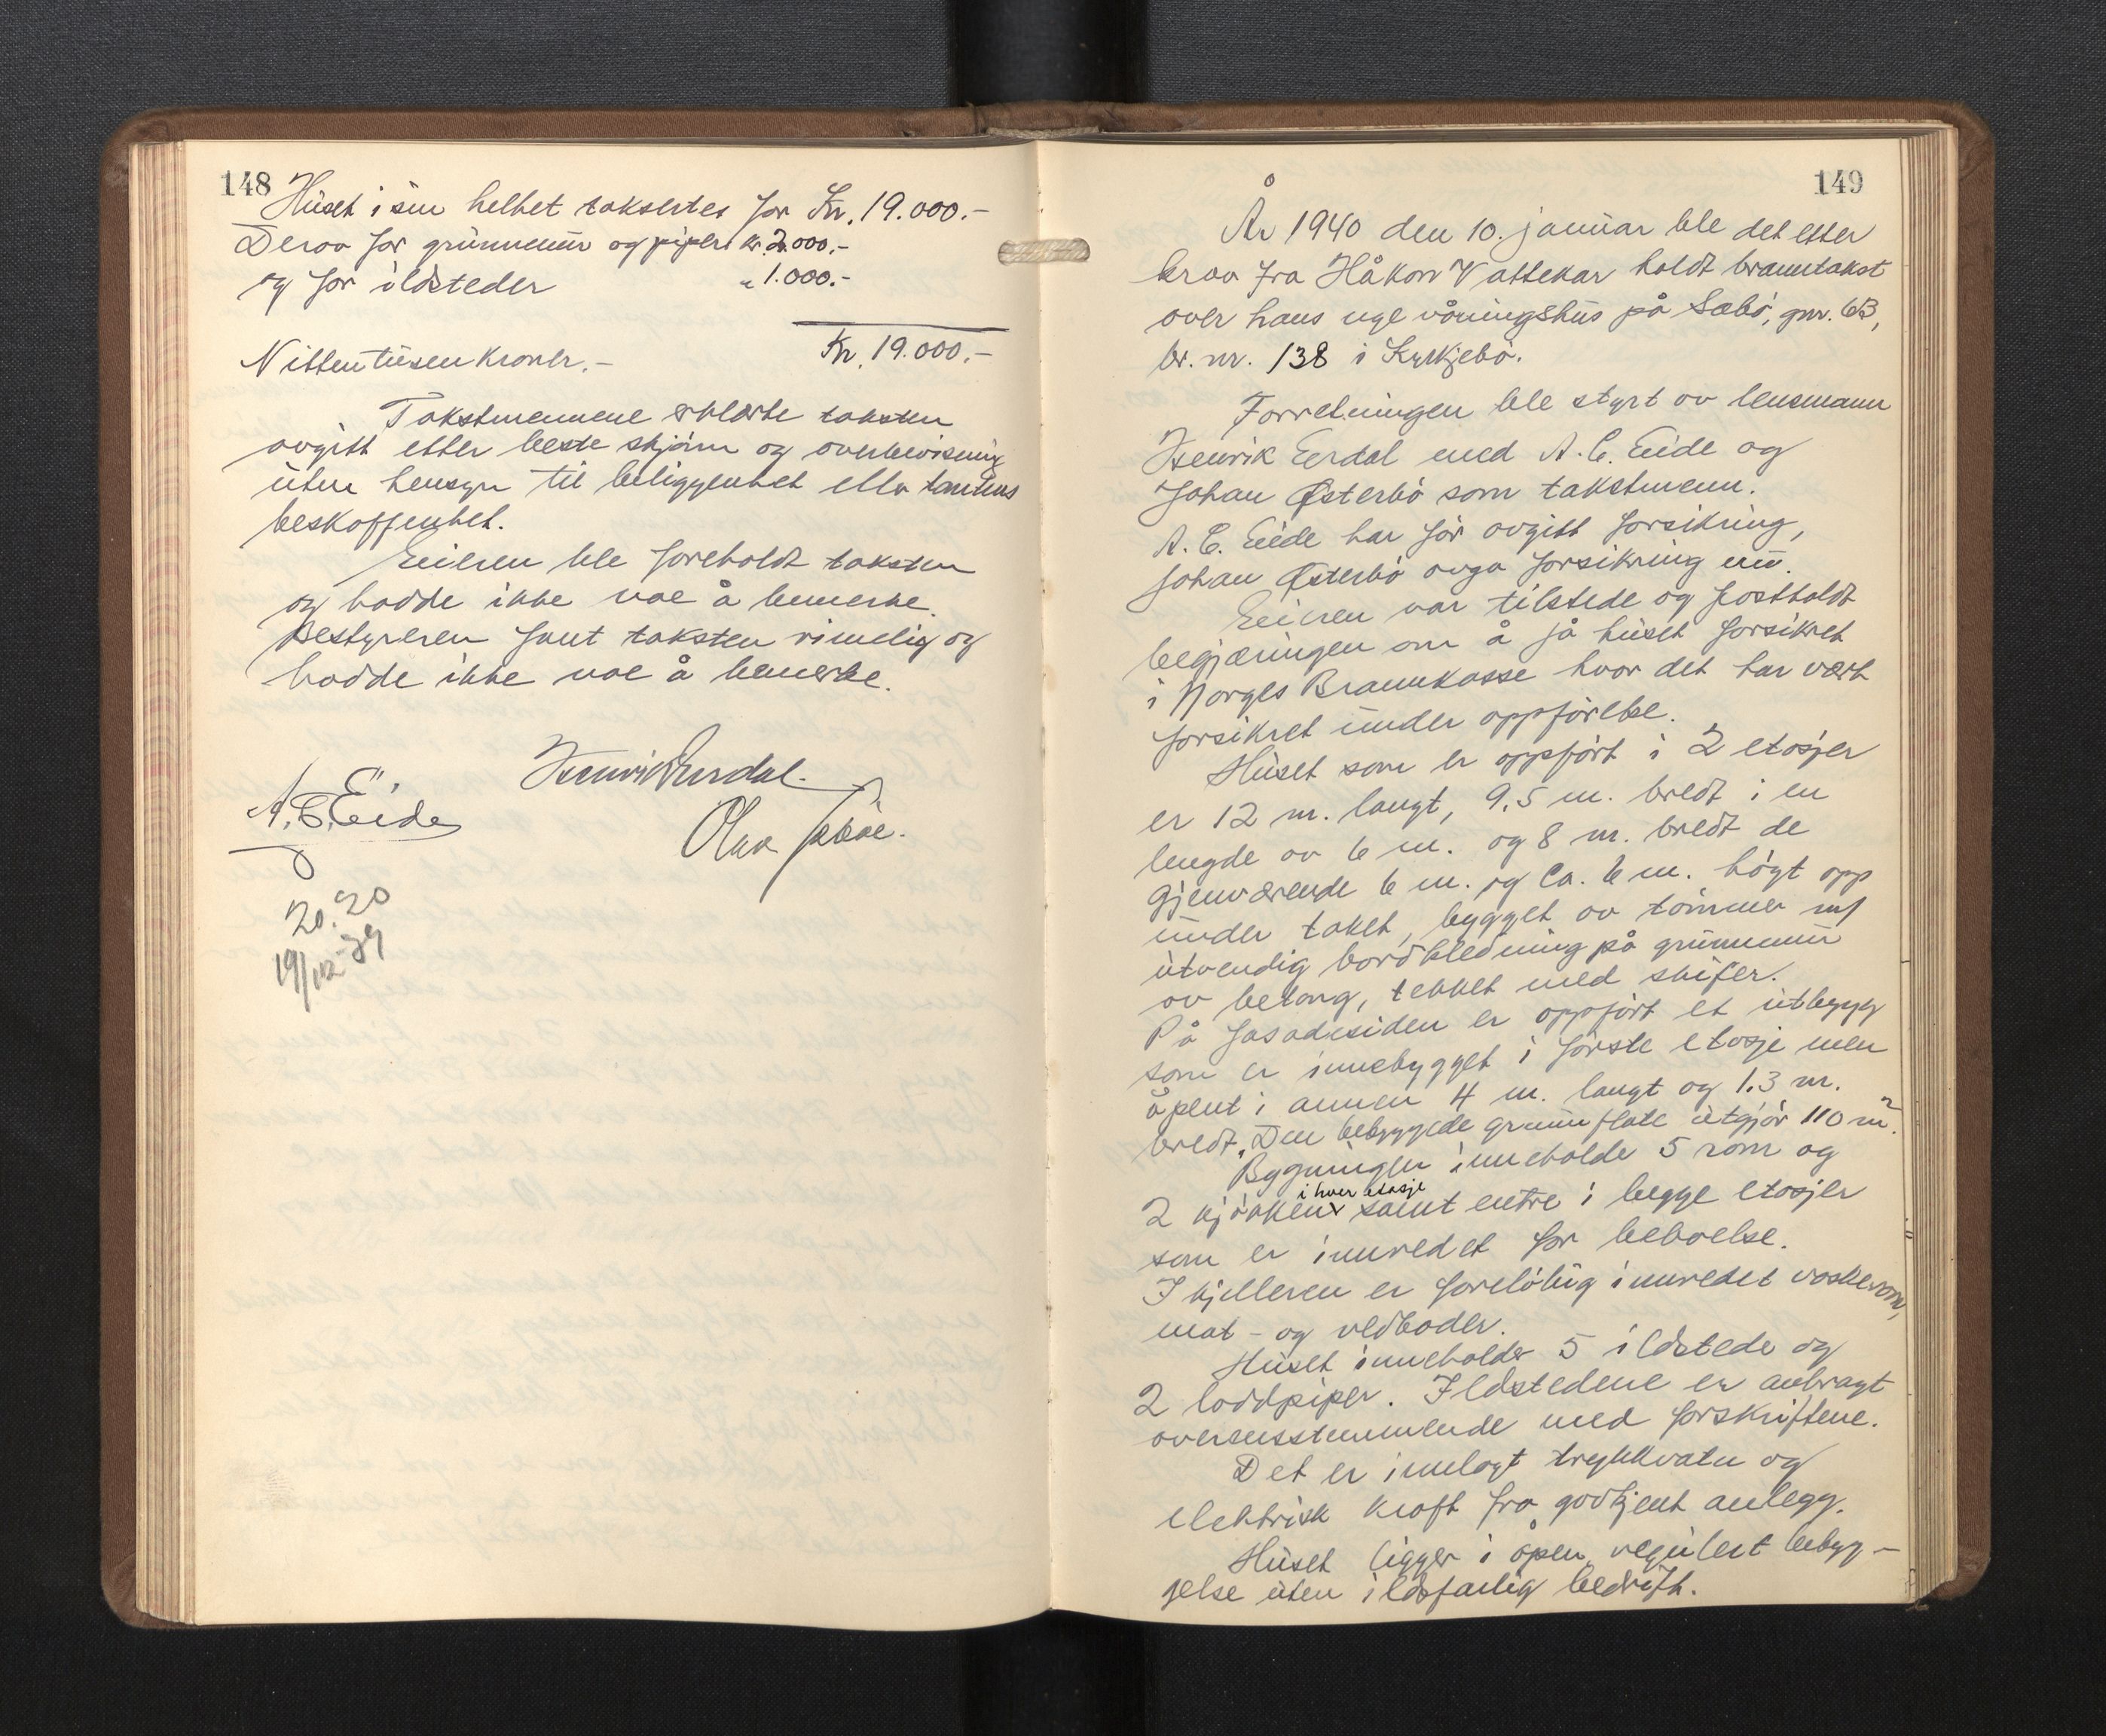 148
Huset i sin helhet taksertes for Kr. 19.000.-
Derav for grunnmur og piper kr. 2.000,-
og for ildsteder " 1.000.-
Nittentusenkroner.- Kr. 19.000.-
Takstmennene erklærte taksten
avgitt etter beste skjønn og overbevisning
uten hensyn til beliggenhet eller tomtens
beskaffenhet.
Eieren ble foreholdt taksten
og hadde ikke noe å bemerke.
Bestyreren fant taksten rimelig og
hadde ikke noe å bemerke.
Henrik Eerdal.
A. E. Eide
Olav
20.20
19/12-39
149
År 1940 den 10. januar ble det etter
krav fra Håkon Vattekar holdt branntakst
over hans nye våningshus på Sæbø, gnr. 63,
br. nr. 138 i Kyrkjebø.
Forretningen ble styrt av lensmann
Henrik Eerdal med A. E. Eide og
Johan Østerbø som takstmenn.
A. E. Eide har før avgitt forsikring,
Johan Østerbø avga forsikring nu.
Eieren var tilstede og fastholdt
begjæringen om å få huset forsikret
i Norges Brannkasse hvor det har vært
forsikret under oppførelse.
Huset som er oppført i 2 etasjer
er 12 m. langt, 9,5 m. bredt i en
lengde av 6 m. og 8 m. bredt de
gjenværende 6 m. og ca. 6 m. høgt opp
under taket, bygget av tømmer m/
utvendig bordkledning på grunnmur
av betong, tekket med skifer.
På fasadesiden er oppført et utbygg
som er innebygget i første etasje men
åpent i annen 4 m. langt og 1.3 m.
bredt. Den bebyggede grunnflate utgjør 110 m².
Bygningen inneholde 5 rom og
i hver etasje
2 kjøkken x samt entre i begge etasjer
som er innredet for beboelse.
I kjelleren er foreløbig innredet vaskerom,
mat- og vedboder.
Huset inneholder 5 ildstede og
2 loddpiper. Ildstedene er anbragt
overensstemmende med forskriftene.
Det er innlagt trykkvatn og
elektrisk kraft fra godkjent anlegg.
Huset ligger i åpen, regulert bebyg-
gelse uten ildsfarlig bedrift.